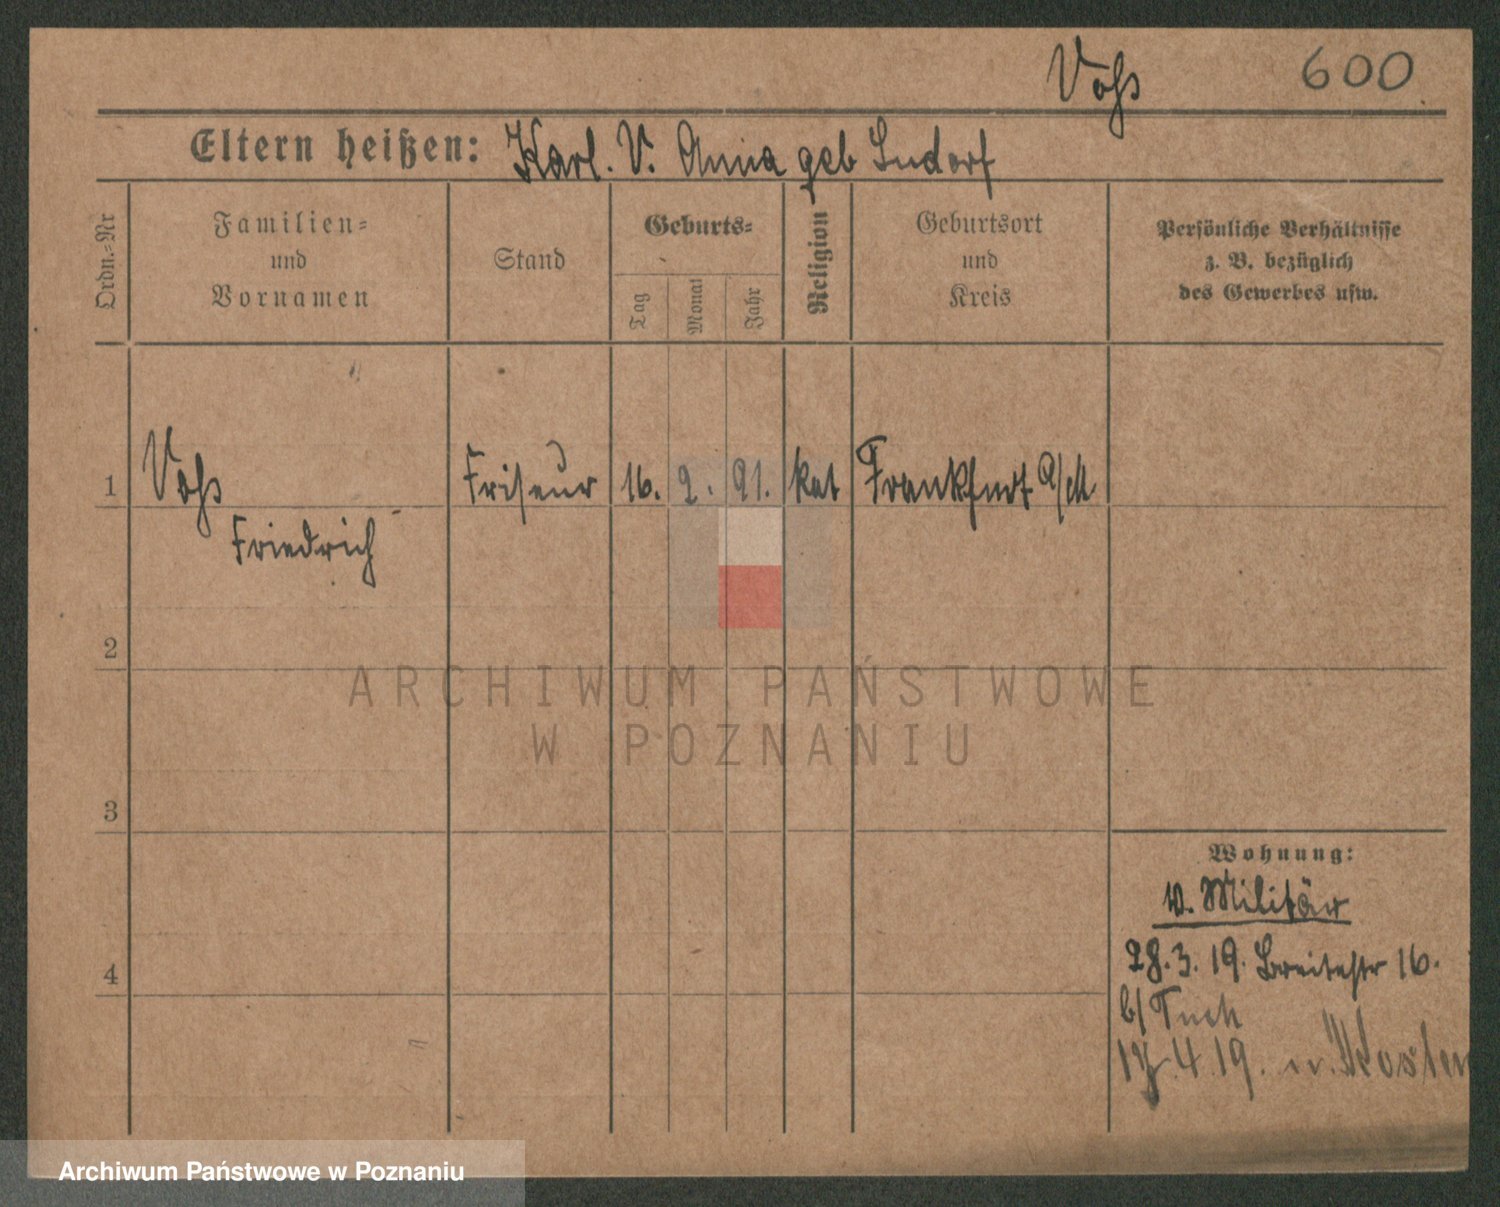 Voß 600
Eltern heißen: Karl. V. Anna geb Ludorf
Ordn.-Nr
Familien-
und
Vornamen
Stand
Geburts-
Tag
Monat
Jahr
Religion
Geburtsort
und
Kreis
Persönliche Verhältnisse
z. B. bezüglich
des Gewerbes usw.
1 Voß Friseur 16. 2. 91. kat Frankfurt a/M.
Friedrich
2
3
4
Wohnung:
v. Militär
28.3.19. Breitestr 16.
b/ Tuch
17.4.19. n. Kosten
ARCHIWUM PAŃSTWOWE
W POZNANIU
Archiwum Państwowe w Poznaniu